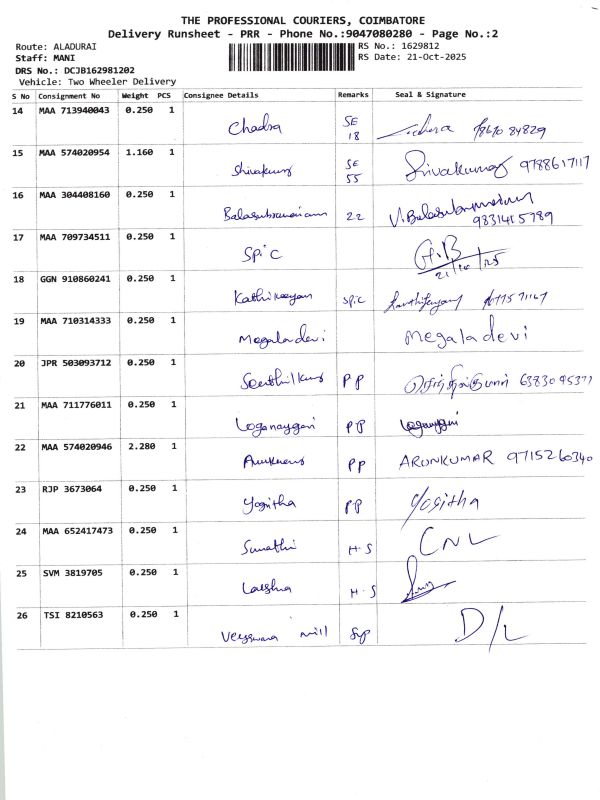 THE PROFESSIONAL COURIERS, COIMBATORE
Delivery Runsheet - PRR - Phone No.:9047080280 - Page No.:2
Route: ALADURAI
RS No.: 1629812
Staff: MANI
RS Date: 21-Oct-2025
DRS No.: DCJB162981202
Vehicle: Two Wheeler Delivery
S No Consignment No Weight PCS Consignee Details Remarks Seal & Signature
14 MAA 713940043 0.250 1
Chadra SE 18
15 MAA 574020954 1.160 1
SE 55 Srivakumar 9788617117
16 MAA 304408160 0.250 1
Balasubramaniam 22 V.Balasubramanium
17 MAA 709734511 0.250 1
SPIC G.B
21/10/25
18 GGN 910860241 0.250 1
Kathikeeyan SPIC
19 MAA 710314333 0.250 1
Megaladevi Megaladevi
20 JPR 503093712 0.250 1
Senthilkumar PP செந்தில்குமார்
21 MAA 711776011 0.250 1
Loganaygari PP
22 MAA 574020946 2.280 1
PP ARUNKUMAR 9715260340
23 RJP 3673064 0.250 1
Yogitha PP Yogitha
24 MAA 652417473 0.250 1
Sumathi H.S CNL
25 SVM 3819705 0.250 1
H.S
26 TSI 8210563 0.250 1
mill D/L